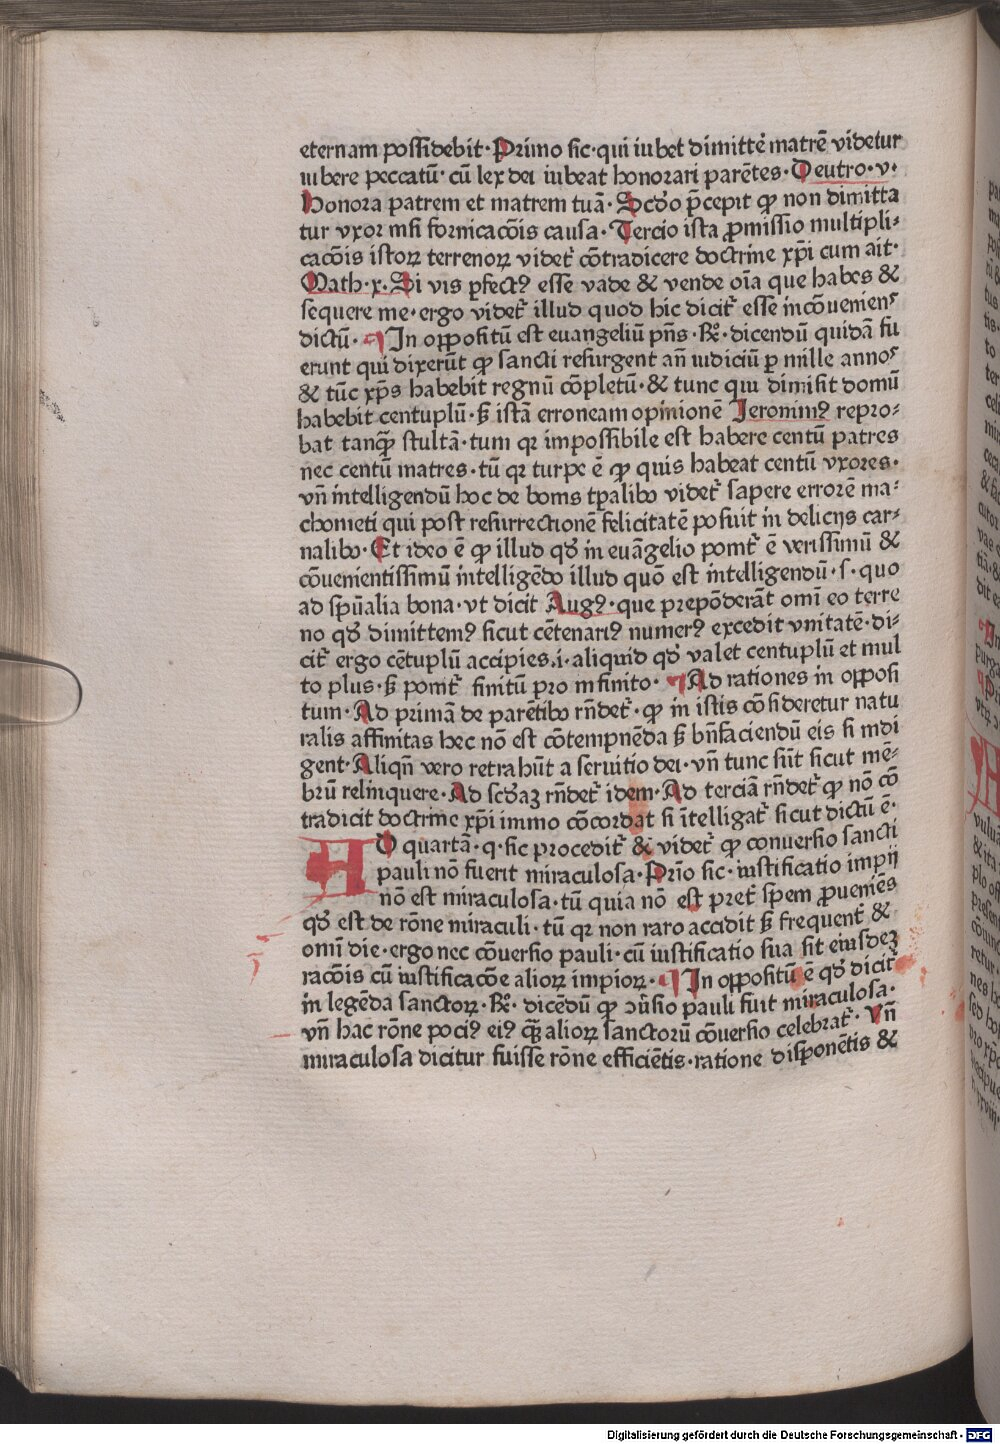 eternam possidebit·Primo sic·qui iubet dimittē matrē videtur
iubere peccatū·cū lex dei iubeat honorari parētes·Deutro·v·
Honora patrem et matrem tuā·Scđo p̄cepit ꝙ non dimitta
tur vxor nisi fornicacōis causa·Tercio ista ꝓmissio multipli⸗
cacōis istoꝝ terrenoꝝ videt᷑ cōtradicere doctrine xp̄i cum ait·
Math·x·Si vis ꝑfectꝰ esse vade & vende oīa que habes &
sequere me·ergo videt᷑ illud quod hic dicit᷑ esse incōueniens
dictū· ¶In oppositū est euangeliū p̄ns·Rͦ·dicendū quidā fu
erunt qui dixerūt ꝙ sancti resurgent an̄ iudiciū ꝑ mille annos
& tūc xp̄s habebit regnū cōpletū·& tunc qui dimisit domū
habebit centuplū·ß istā erroneam opinionē Jeronimꝰ repro⸗
bat tanq̄ꝫ stultā·tum qꝛ impossibile est habere centū patres
nec centū matres·tū qꝛ turpe ē ꝙ quis habeat centū vxores·
vn̄ intelligendū hoc de bonis tꝑalibꝰ videt᷑ sapere errorē ma⸗
chometi qui post resurrectionē felicitatē posuit in delicijs car⸗
nalibꝰ·Et ideo ē ꝙ illud qđ in euāgelio ponit᷑ ē verissimū &
cōuenientissimū intelligēdo illud quō est intelligendū·s·quo
ad sp̄ualia bona·vt dicit Augꝰ·que prepōderāt omi eo terre
no qđ dimittemꝰ sicut cētenariꝰ numerꝰ excedit vnitatē·di⸗
cit᷑ ergo cētuplū accipies.i·aliquid qđ valet centuplū et mul
to plus·ß ponit᷑ finitū pro infinito· ¶Ad rationes in opposi
tum·Ad primā de parētibꝰ rn̄det᷑·ꝙ in istis cōsideretur natu
ralis affinitas hec nō est cōtempnēda ß bn̄faciendū eis si indi
gent·Aliqn̄ vero retrahūt a seruitio dei·vn̄ tunc sūt sicut mē⸗
brū relinquere·Ad scđaꝫ rn̄det᷑ idem·Ad terciā rn̄det᷑ ꝙ nō cō
tradicit doctrine xp̄i immo cōcordat si ītelligat᷑ sicut dictū ē·
AD quartā·q·sic procedit᷑ & videt᷑ ꝙ conuersio sancti
pauli nō fuerit miraculosa·Prīo sic·iustificatio impij
nō est miraculosa·tū quia nō est pret᷑ spem ꝓueniēs
qđ est de rōne miraculi·tū qꝛ non raro accidit ß frequent᷑ &
omi die·ergo nec cōuersio pauli·cū iustificatio sua sit eiusdeꝫ
racōis cū iustificacōe alioꝝ impioꝝ· ¶In oppositū ē qđ dicit᷑
in legēda sanctoꝝ·Rͦ·dicēdū ꝙ ↄūsio pauli fuit miraculosa·
vn̄ hac rōne pociꝰ eiꝰ q̄ꝫ alioꝝ sanctorū cōuersio celebrat᷑·Vn̄
miraculosa dicitur fuisse rōne efficiētis·ratione disponētis &
Digitalisierung gefördert durch die Deutsche Forschungsgemeinschaft · DFG